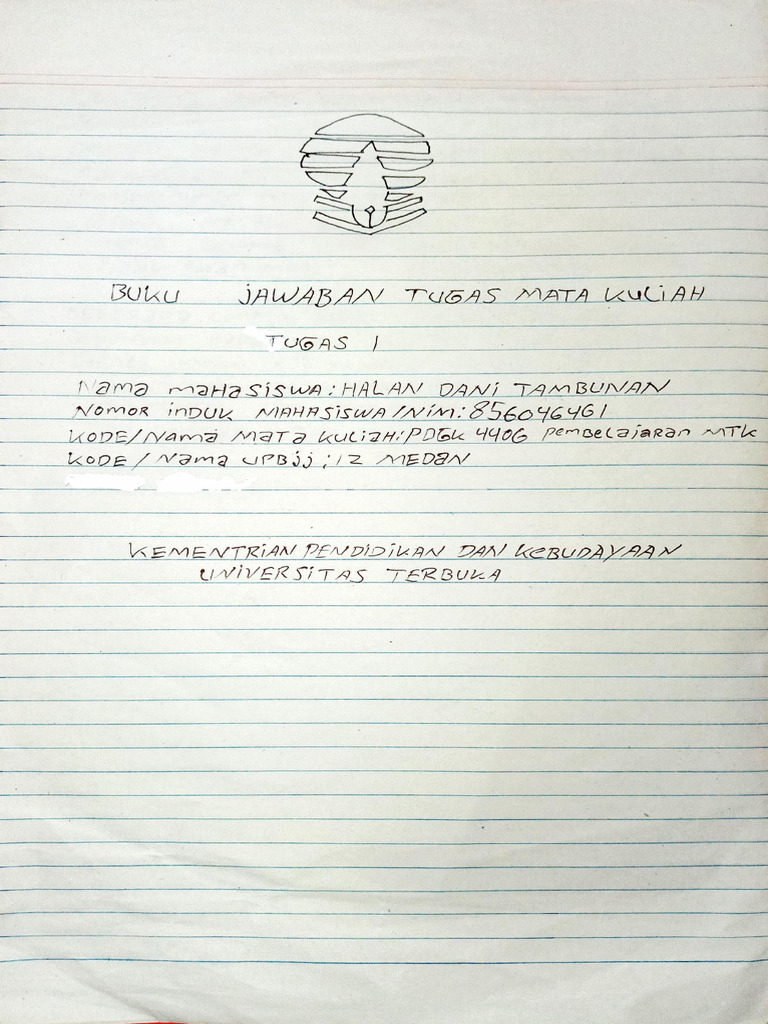 BUKU JAWABAN TUGAS MATA KULIAH
TUGAS 1
Nama maHasiswa : HALAN DANI TAMBUNAN
NOMOR iNDUK MAHASISWA/NiM : 856046461
KODE/Nama MATA KULiaH : PDGK 4406 PemBelajaran MTK
KODE / Nama UPBjj : 12 MEDaN
KEMENTRIAN PENDIDIKAN DAN KeBUDAYAAN
UNIVERSITAS TERBUKA